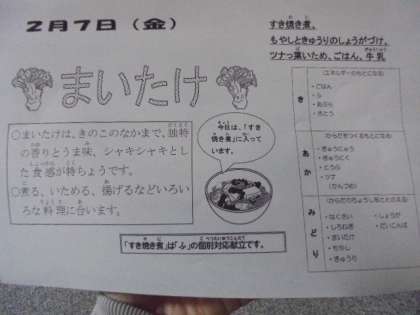 2月7日（金）
すき焼き煮、
もやしときゅうりのしょうがづけ、
ツナっ葉いため、ごはん、牛乳
まいたけ
○まいたけは、きのこのなかまで、独特
の香りとうま味、シャキシャキとし
た食感が特ちょうです。
○煮る、いためる、揚げるなどいろい
ろな料理に合います。
今日は、「すき
焼き煮」に入って
います。
「すき焼き煮」は「ふ」の個別対応献立です。
き
(エネルギーのもとになる)
・ごはん
・ふ
・あぶら
・さとう
あか
(からだをつくるもとになる)
・ぎゅうにゅう
・ぎゅうにく
・とうふ
・ツナ
(かんづめ)
みどり
・はくさい
・しょうが
・しろねぎ
・だいこんば
・まいたけ
・もやし
・きゅうり